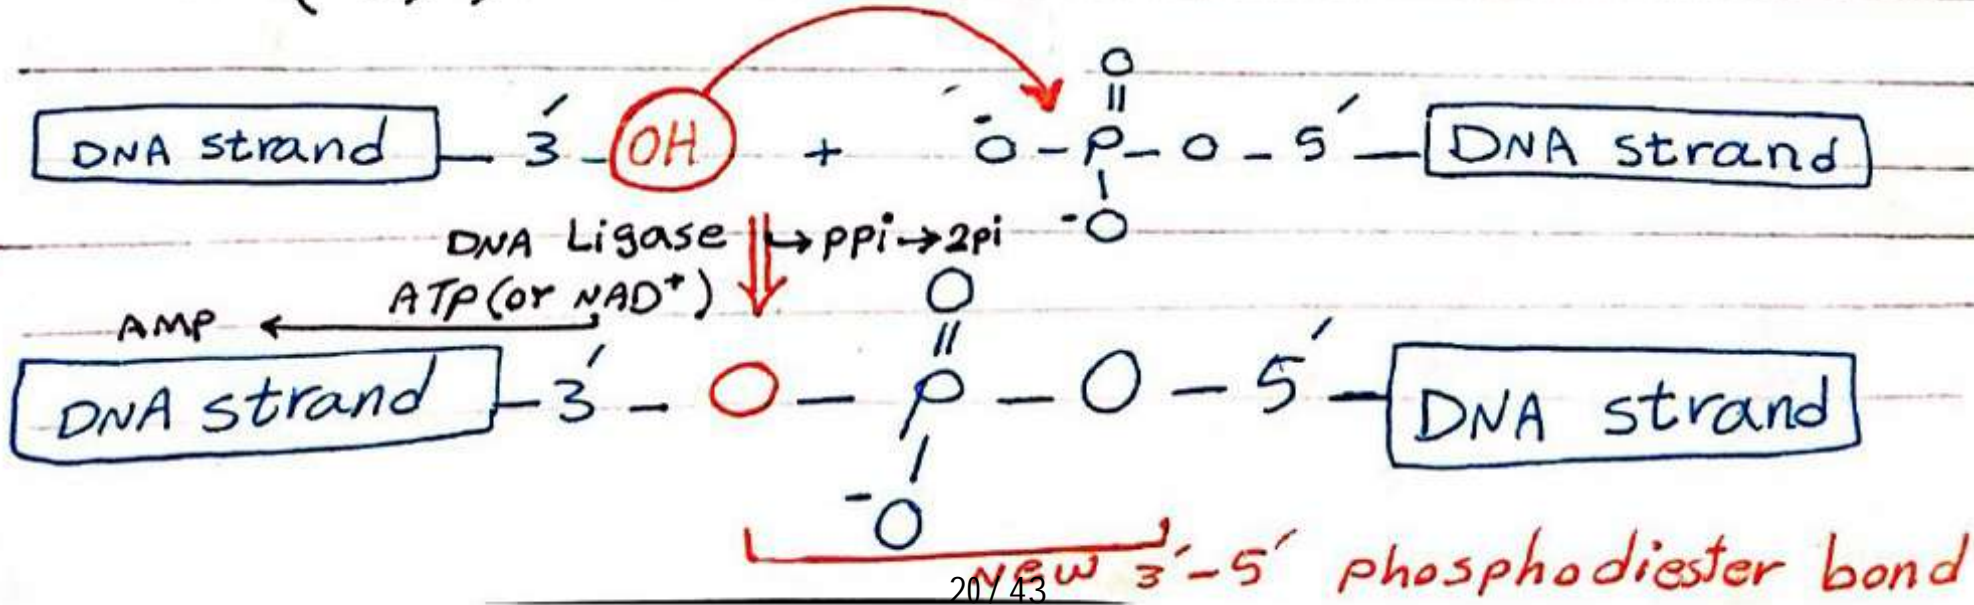 O
DNA strand - 3′ - OH + ⁻O - P - O - 5′ - DNA strand
DNA Ligase → ppi → 2pi ⁻O
ATP (or NAD⁺) O
AMP ←
DNA strand - 3′ - O - P - O - 5′ - DNA strand
⁻O
new 3′-5′ phosphodiester bond
20 / 43